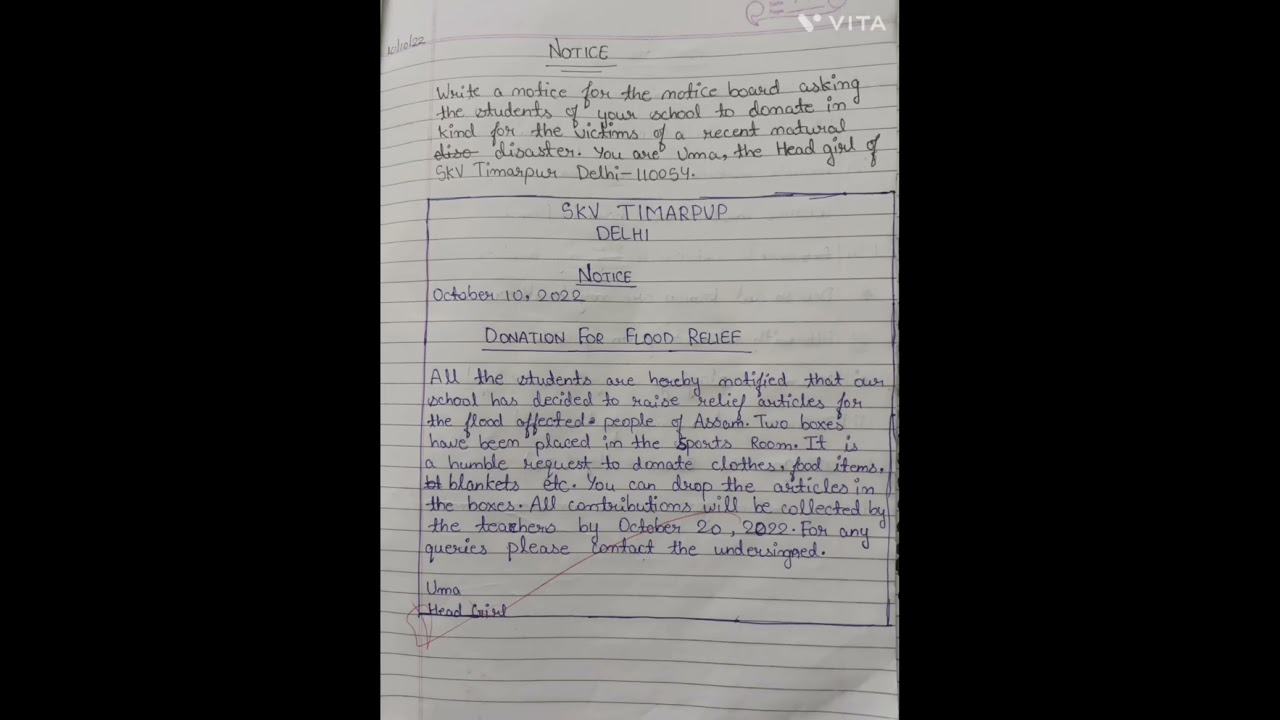 VITA
10/10/22
NOTICE
Write a notice for the notice board asking
the students of your school to donate in
kind for the victims of a recent natural
diso disaster. You are Uma, the Head girl of
SKV Timarpur Delhi-110054.
SKV TIMARPUP
DELHI
NOTICE
October 10, 2022
DONATION FOR FLOOD RELIEF
All the students are hereby notified that our
school has decided to raise relief articles for
the flood affected people of Assam. Two boxes
have been placed in the Sports Room. It is
a humble request to donate clothes, food items,
bt blankets etc. You can drop the articles in
the boxes. All contributions will be collected by
the teachers by October 20, 2022. For any
queries please contact the undersigned.
Uma
Head Girl